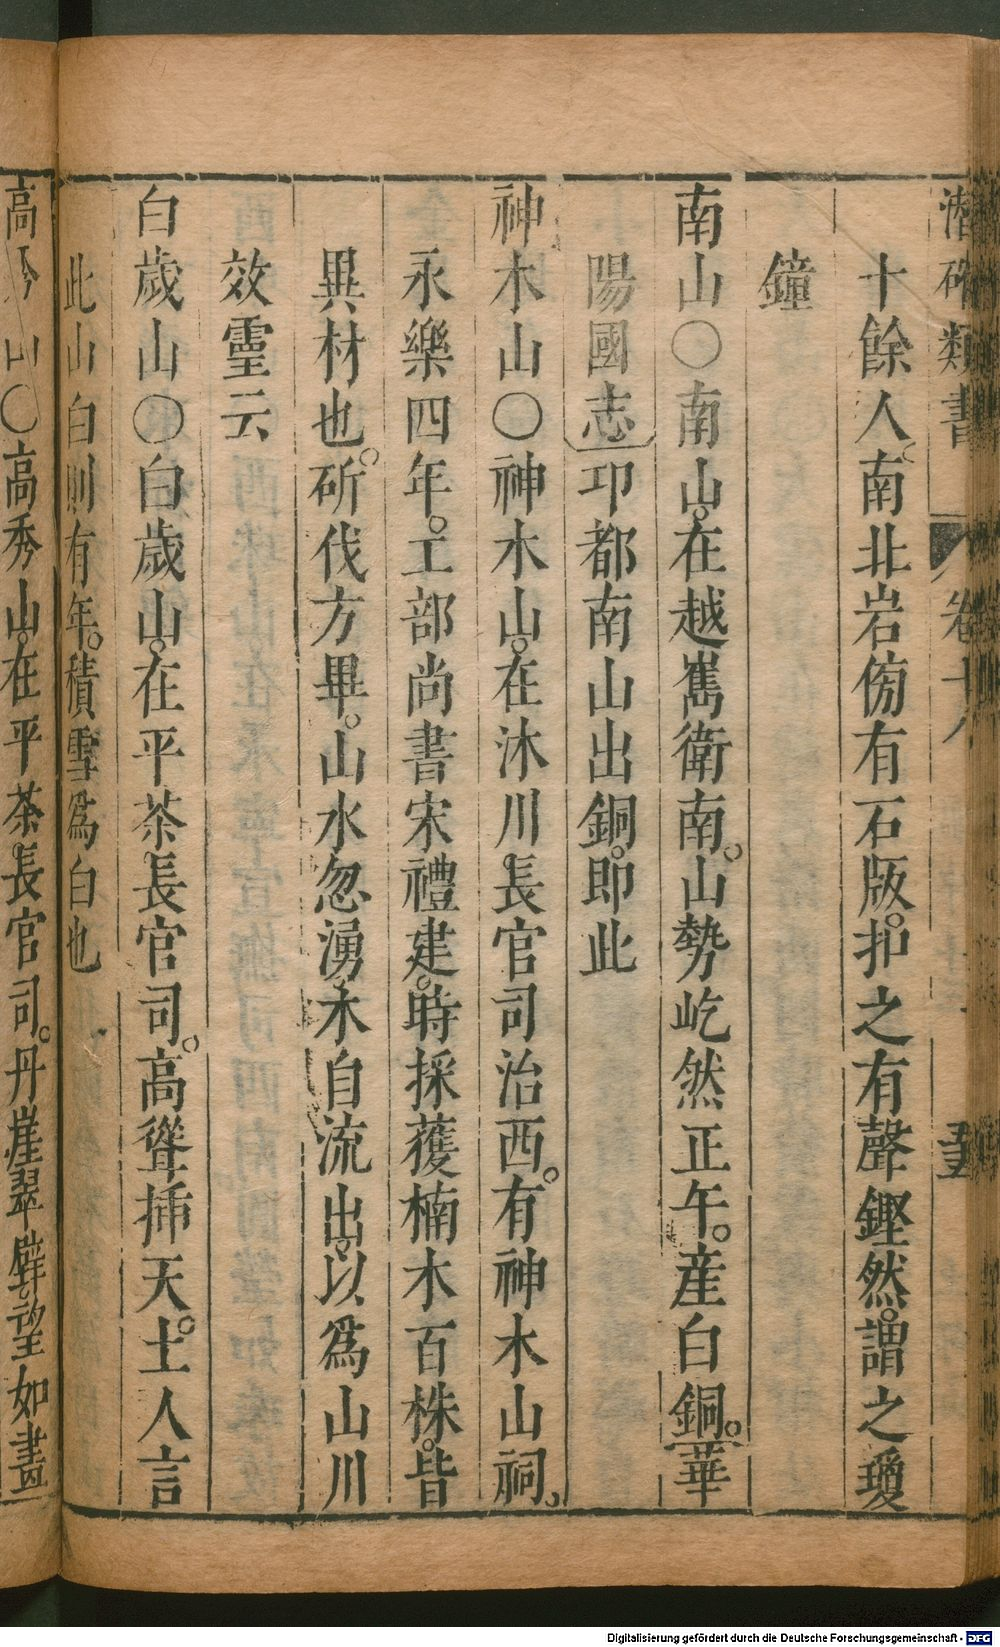 潛確類書 卷十八 五
十餘人南北岩傍有石版扣之有聲鏗然謂之瓊
鐘
南山〇南山在越嶲衛南山勢屹然正午產白銅華
陽國志卭都南山出銅即此
神木山〇神木山在沐川長官司治西有神木山祠
永樂四年工部尚書宋禮建時採獲楠木百株皆
異材也斫伐方畢山水忽湧木自流出以為山川
效靈云
白歲山〇白歲山在平茶長官司高聳挿天土人言
此山白則有年積雪為白也
高秀山〇高秀山在平茶長官司丹崖翠壁望如畫
Digitalisierung gefördert durch die Deutsche Forschungsgemeinschaft - DFG